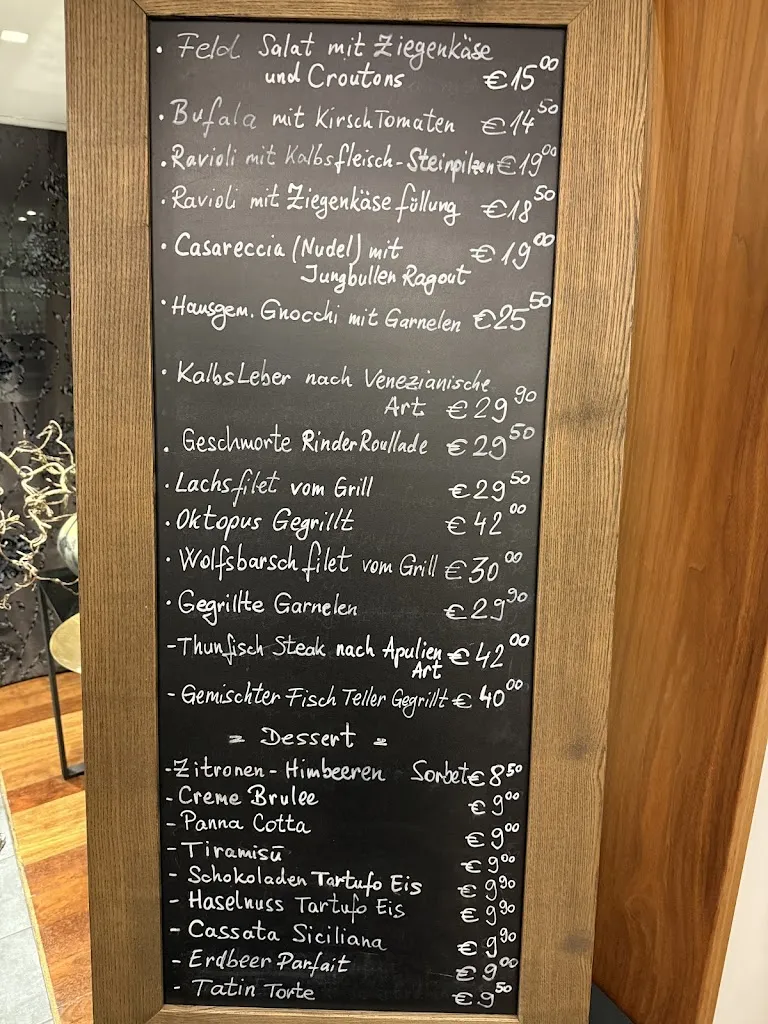 • Feld Salat mit Ziegenkäse
und Croutons €15 00
• Bufala mit KirschTomaten €14 50
• Ravioli mit Kalbsfleisch-Steinpilzen €19 00
• Ravioli mit Ziegenkäse füllung €18 50
• Casareccia (Nudel) mit €19 00
Jungbullen Ragout
• Hausgem. Gnocchi mit Garnelen €25 50
• KalbsLeber nach Venezianische
Art €29 90
• Geschmorte RinderRoullade €29 50
• Lachsfilet vom Grill €29 50
• Oktopus Gegrillt €42 00
• Wolfsbarsch filet vom Grill €30 00
• Gegrillte Garnelen €29 90
- Thunfisch Steak nach Apulien €42 00
Art
- Gemischter Fisch Teller Gegrillt €40 00
= Dessert =
- Zitronen - Himbeeren Sorbet €8 50
- Creme Brulee €9 00
- Panna Cotta €9 00
- Tiramisū €9 00
- Schokoladen Tartufo Eis €9 90
- Haselnuss Tartufo Eis €9 90
- Cassata Siciliana €9 90
- Erdbeer Parfait €9 00
- Tatin Torte €9 50